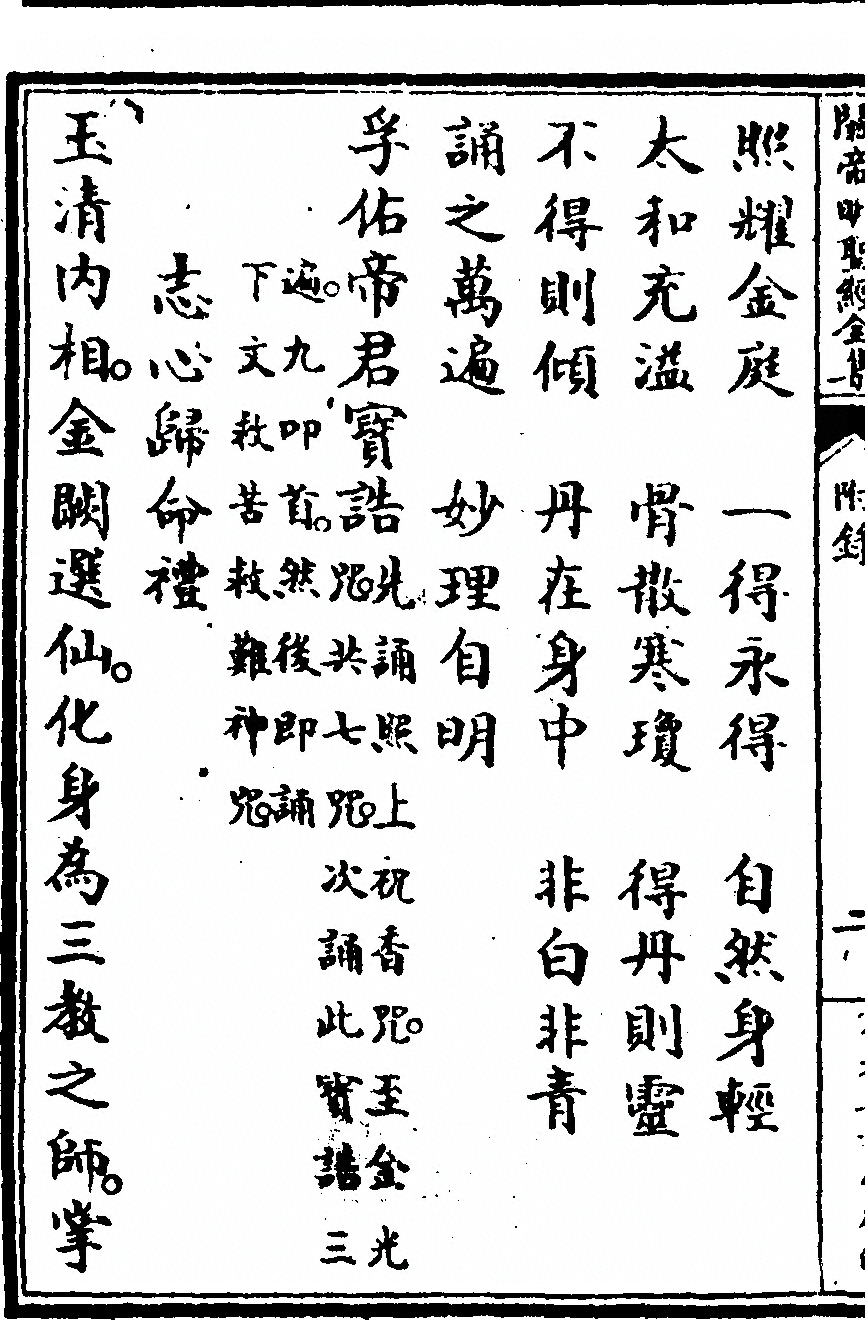 關帝明聖經全集
附錄
二
照耀金庭　一得永得　自然身輕
太和充溢　骨散寒瓊　得丹則靈
不得則傾　丹在身中　非白非青
誦之萬遍　妙理自明
孚佑帝君寶誥
先誦照上祝香咒。至金光
咒。共七咒。次誦此寶誥三
遍。九叩首。然後即誦
下文救苦救難神咒。
志心歸命禮
玉清內相。金闕選仙。化身為三教之師。掌